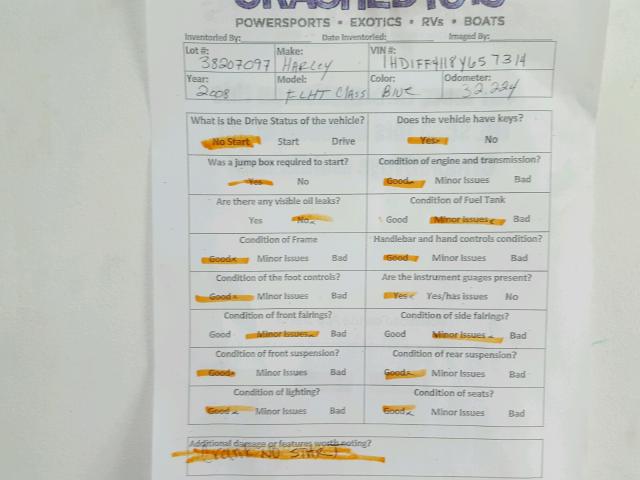 CRASHED TOYS
POWERSPORTS • EXOTICS • RVs • BOATS
Inventoried By: Date Inventoried: Imaged By:
Lot #: Make: VIN #:
38207097 HARLEY 1HD1FF4118Y657314
Year: Model: Color: Odometer:
2008 FLHT CLASS BLUE 32,224
What is the Drive Status of the vehicle? Does the vehicle have keys?
No Start Start Drive Yes No
Was a jump box required to start? Condition of engine and transmission?
Yes No Good Minor Issues Bad
Are there any visible oil leaks? Condition of Fuel Tank
Yes No Good Minor Issues Bad
Condition of Frame Handlebar and hand controls condition?
Good Minor Issues Bad Good Minor Issues Bad
Condition of the foot controls? Are the instrument guages present?
Good Minor Issues Bad Yes Yes/has issues No
Condition of front fairings? Condition of side fairings?
Good Minor Issues Bad Good Minor Issues Bad
Condition of front suspension? Condition of rear suspension?
Good Minor Issues Bad Good Minor Issues Bad
Condition of lighting? Condition of seats?
Good Minor Issues Bad Good Minor Issues Bad
Additional damage or features worth noting?
NO START